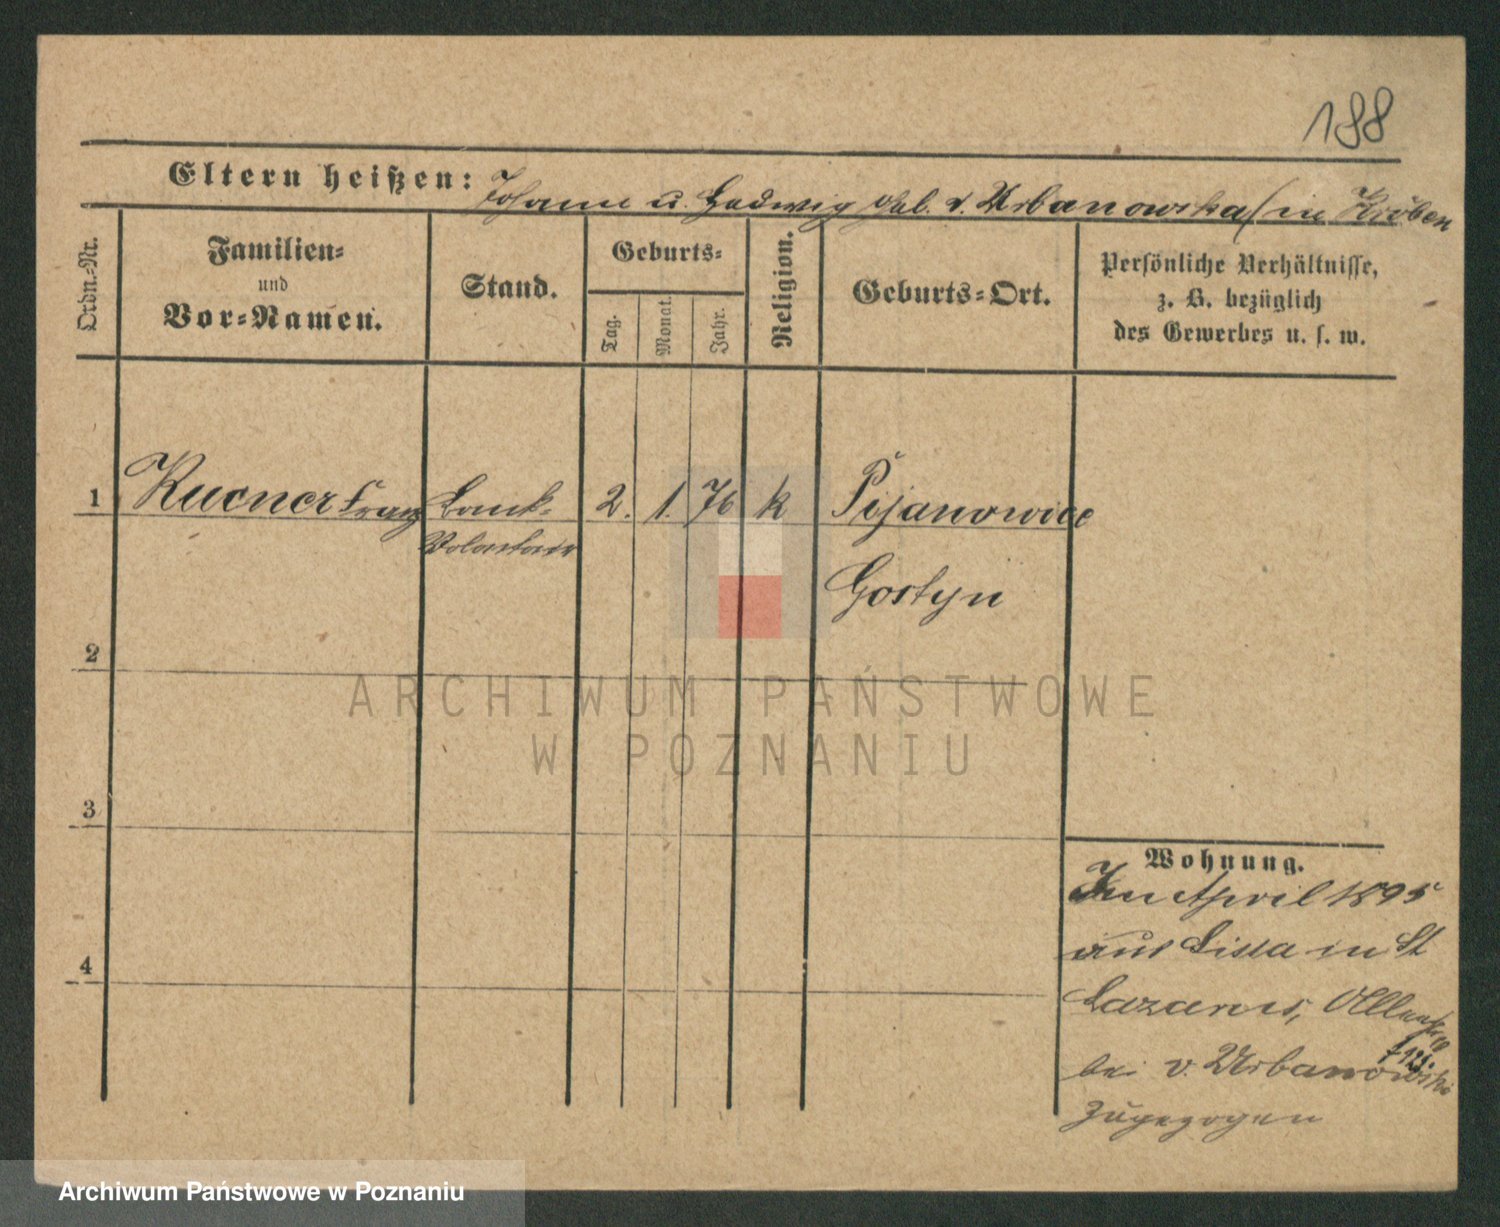 188
Eltern heißen: Johann u. Hedwig geb. v. Urbanowska (in Kröben
Ordn.-Nr.
Familien-
und
Vor-Namen.
Stand.
Geburts-
Tag.
Monat.
Jahr.
Religion.
Geburts-Ort.
Persönliche Verhältnisse,
z. B. bezüglich
des Gewerbes u. s. w.
1 Kucner Franz Bank- 2. 1. 76 k Pijanowice
Volontair
Gostyn
2
3
4
Wohnung.
Im April 1895
aus Lissa in St
Lazarus,
bei v. Urbanowski
zugezogen
ARCHIWUM PAŃSTWOWE
W POZNANIU
Archiwum Państwowe w Poznaniu